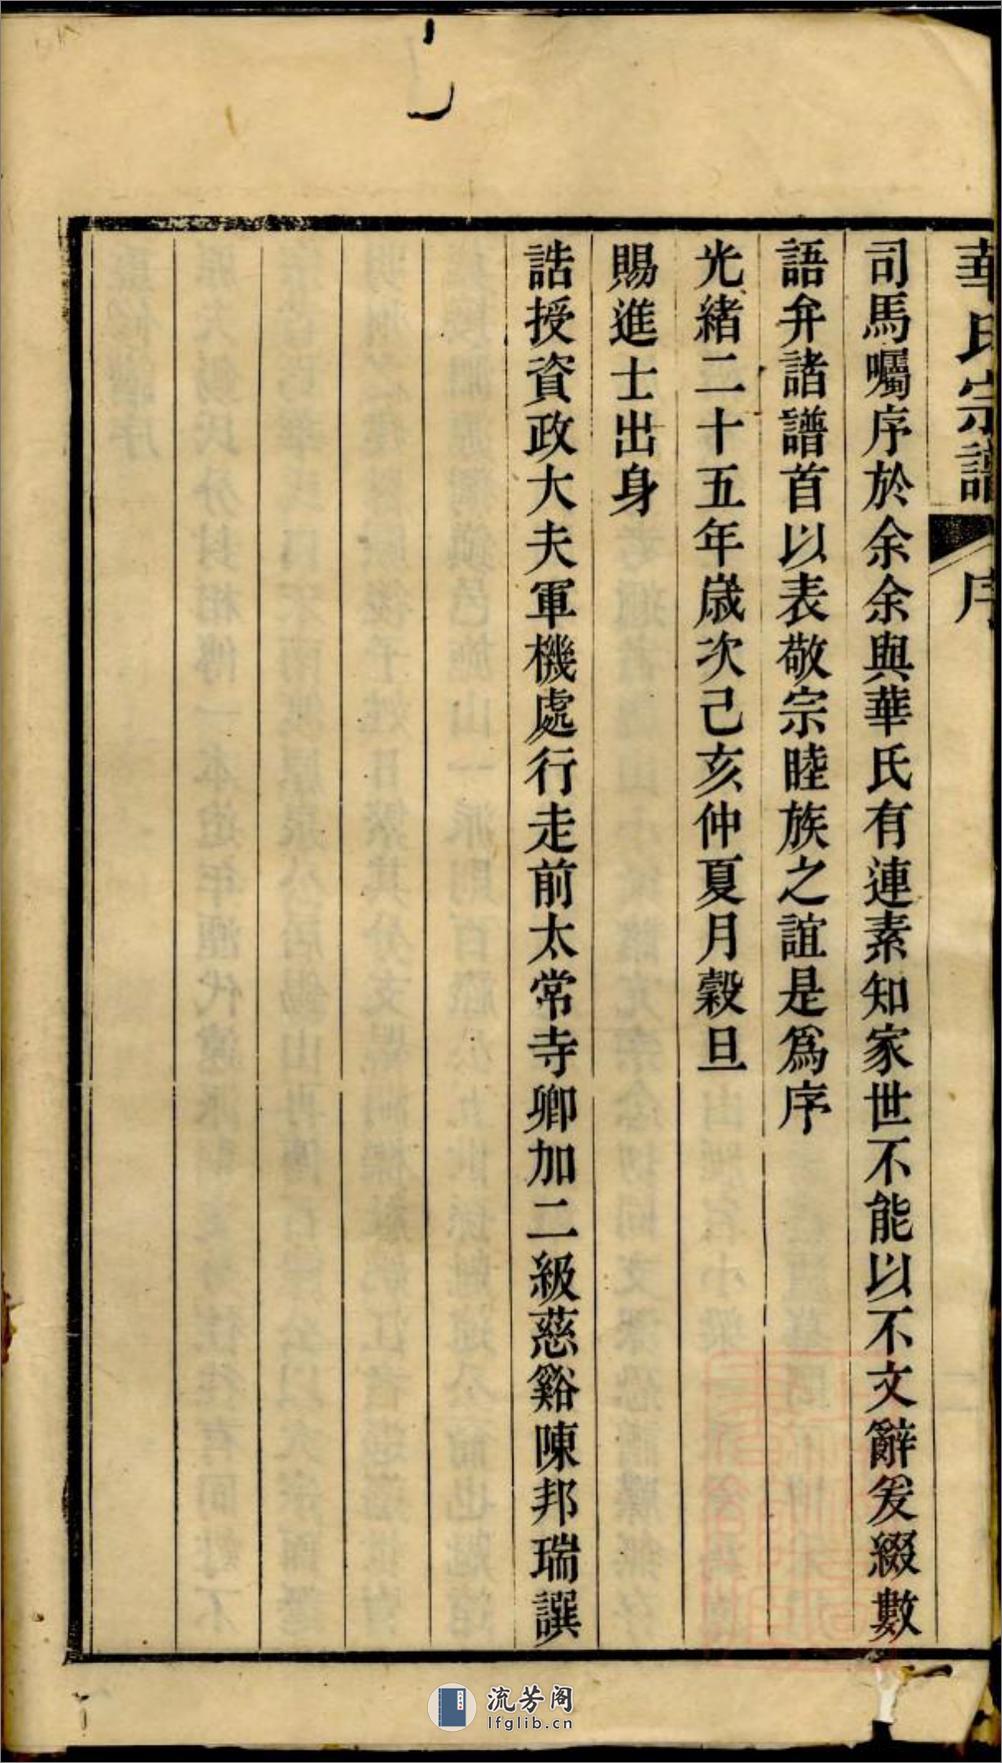 華氏宗譜 序
司馬囑序於余余與華氏有連素知家世不能以不文辭爰綴數
語弁諸譜首以表敬宗睦族之誼是爲序
光緒二十五年歲次己亥仲夏月穀旦
賜進士出身
誥授資政大夫軍機處行走前太常寺卿加二級慈谿陳邦瑞譔
流芳阁
lfglib.cn